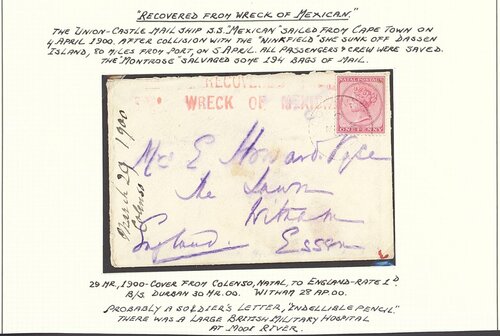 "RECOVERED FROM WRECK OF MEXICAN."
THE UNION-CASTLE MAIL SHIP S.S. "MEXICAN" SAILED FROM CAPE TOWN ON
4 APRIL 1900. AFTER COLLISION WITH THE "WINKFIELD" SHE SUNK OFF DASSEN
ISLAND, 80 MILES FROM PORT, ON 5 APRIL. ALL PASSENGERS & CREW WERE SAVED.
THE "MONTROSE" SALVAGED SOME 194 BAGS OF MAIL.
RECOVERED
WRECK OF MEXICAN
NATAL POSTAGE
ONE PENNY
March 29 1900
Colenso
Mrs E Howard Vyse
The Lawn
Witham
Essex
England
29 MR, 1900-COVER FROM COLENSO, NATAL, TO ENGLAND-RATE 1d
B/S DURBAN 30 MR.00. WITHAM 28 AP.00.
PROBABLY A SOLDIER'S LETTER, "INDELLIBLE PENCIL."
THERE WAS A LARGE BRITISH MILITARY HOSPITAL
AT MOOI RIVER.